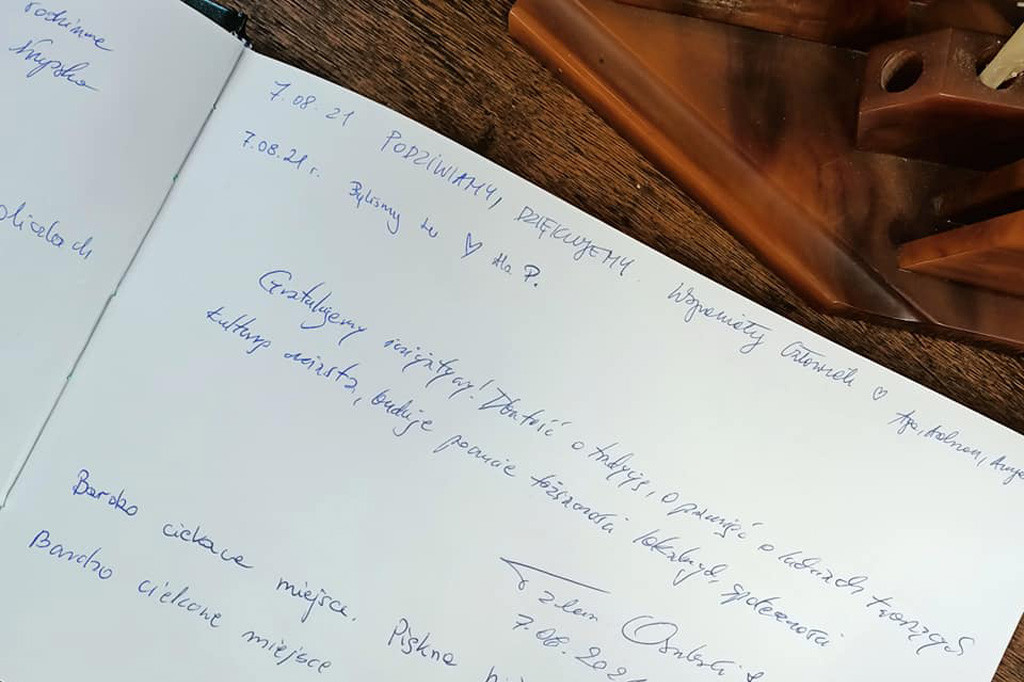 rodzinne
7.08.21 PODZIWIAMY, DZIĘKUJEMY. Wspaniały Człowiek ♡ Aga,
7.08.21 r. Byliśmy tu ♡ Ala P.
Gratulujemy inicjatywy! Dbałość o tradycję, o pamięć o ludziach tworzących
kulturę miasta, buduje poczucie tożsamości lokalnych społeczności
7.08.2021
Bardzo ciekawe miejsce. Piękna
Bardzo ciekawe miejsce